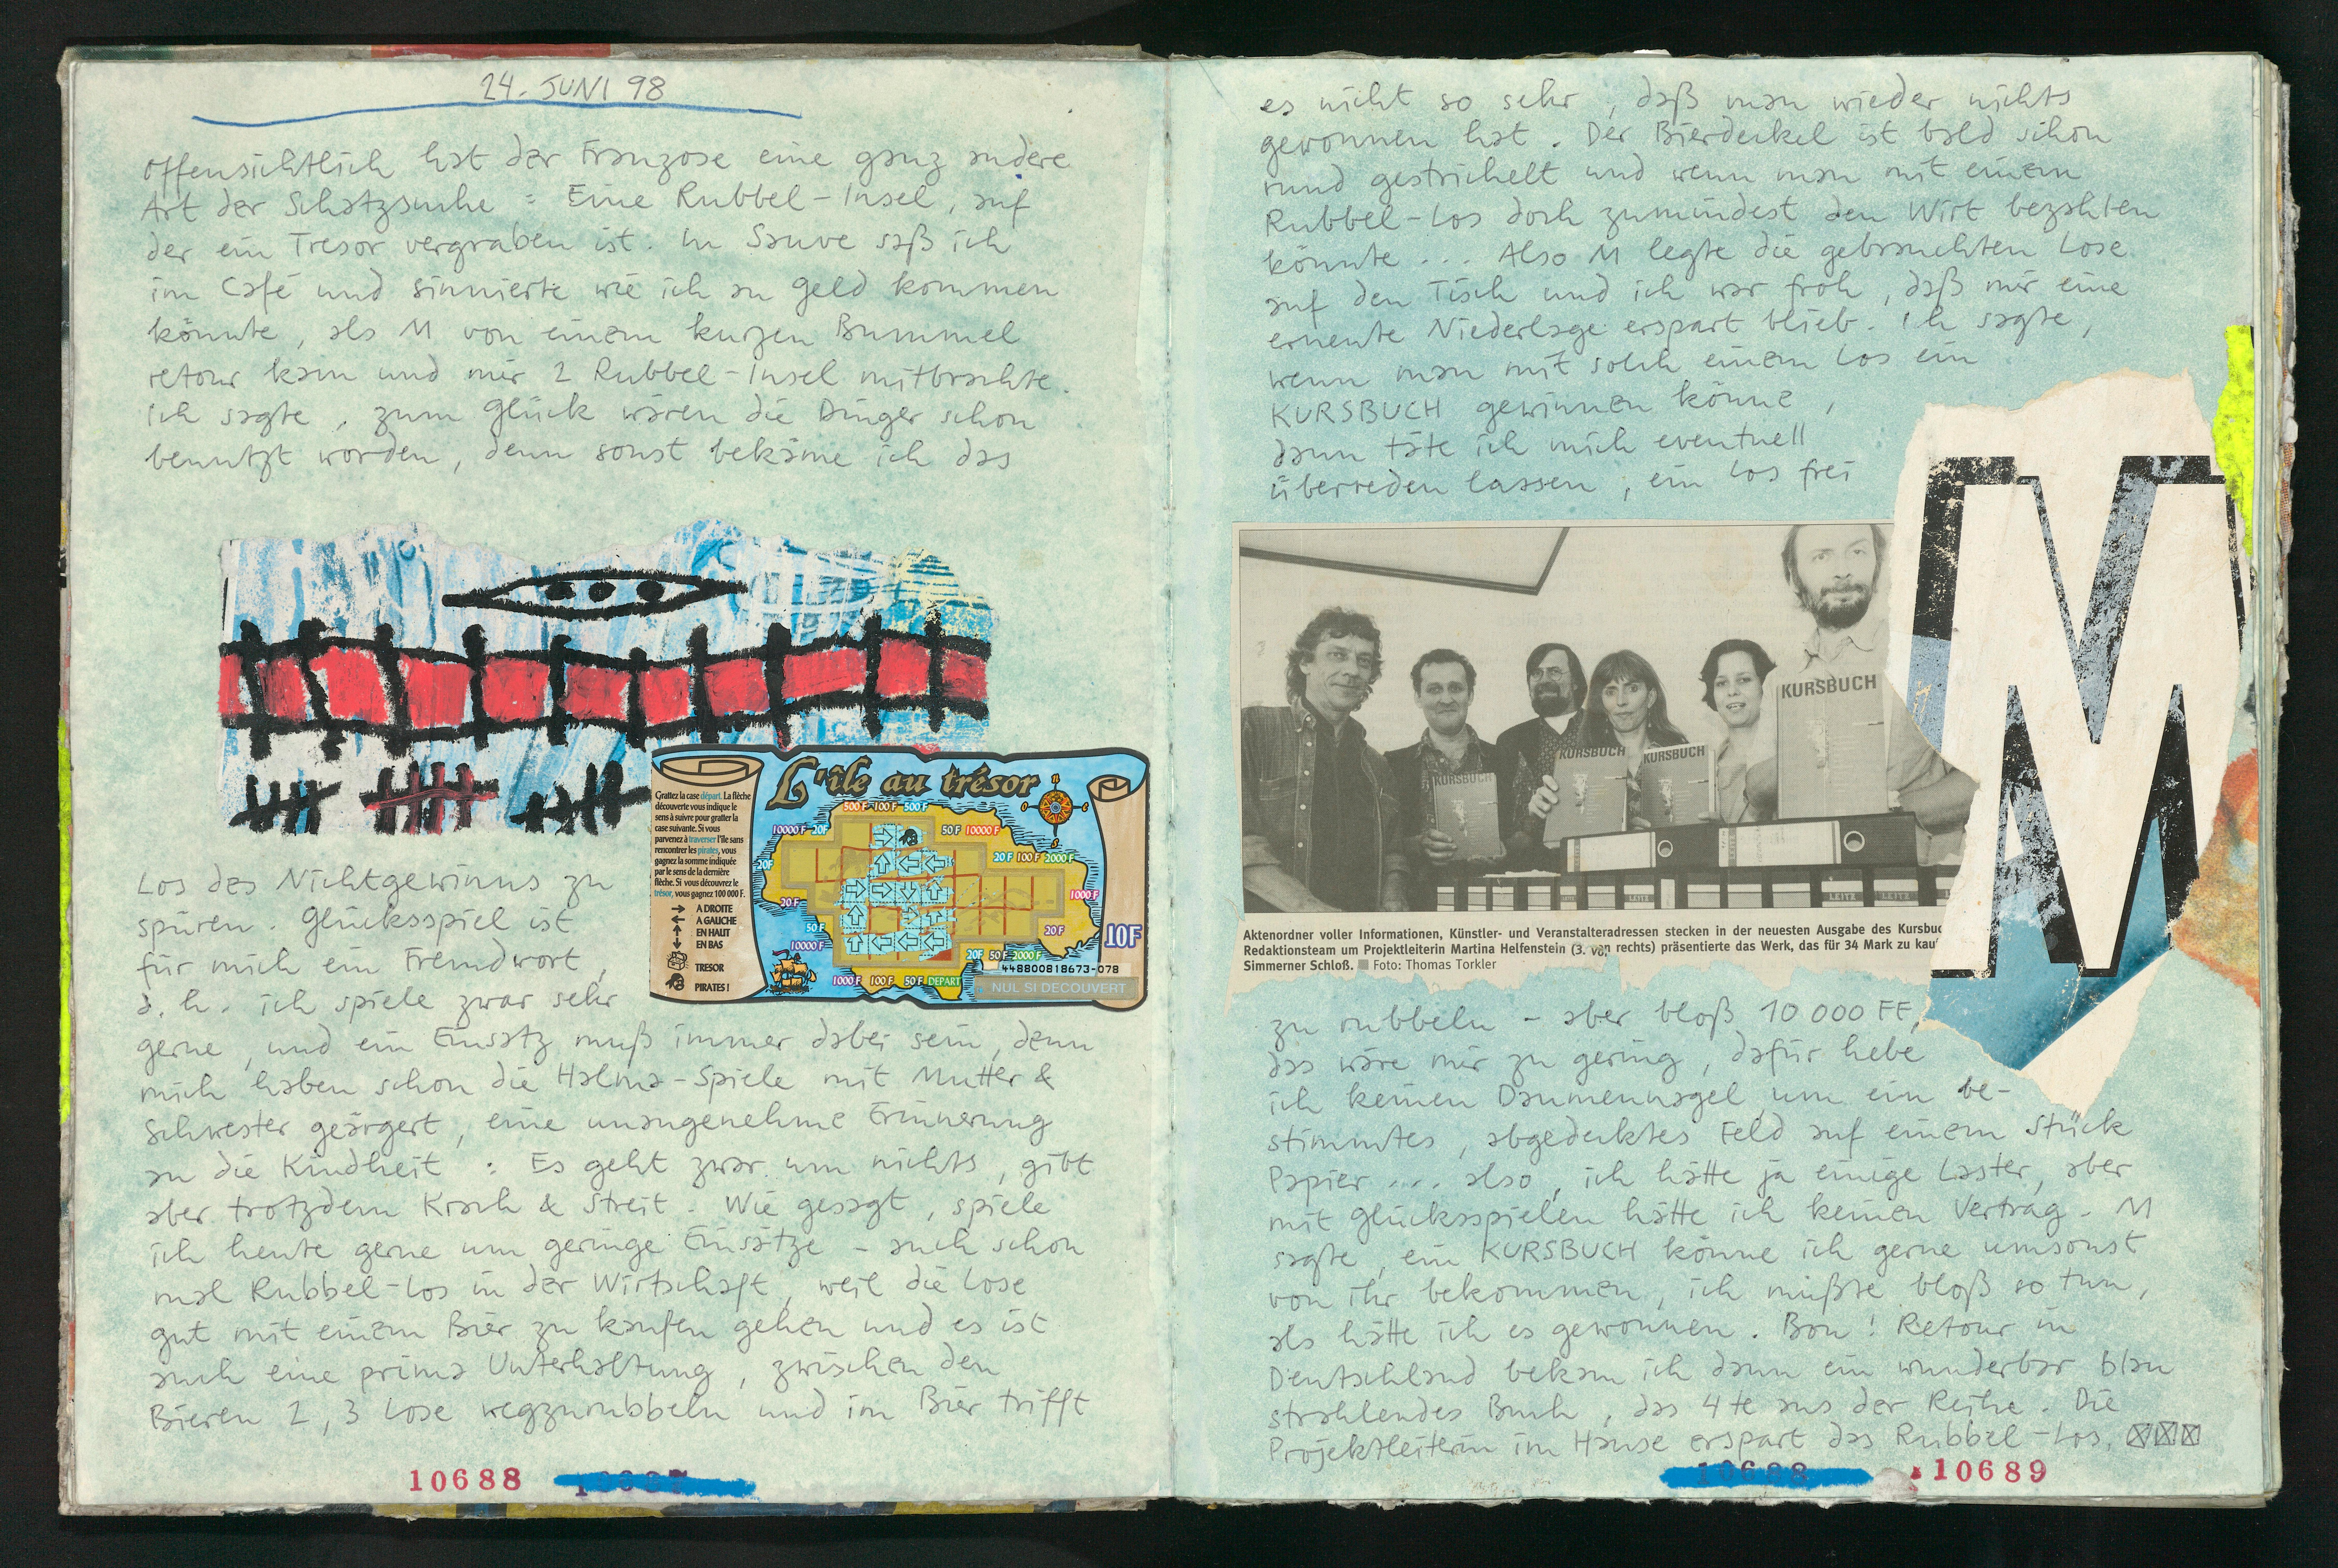 24. JUNI 98
Offensichtlich hat der Franzose eine ganz andere
Art der Schatzsuche : Eine Rubbel-Insel, auf
der ein Tresor vergraben ist. In Sauve saß ich
im Café und sinnierte wie ich an Geld kommen
könnte, als M von einem kurzen Bummel
retour kam und mir 2 Rubbel-Insel mitbrachte.
Ich sagte, zum Glück wären die Dinger schon
benutzt worden, denn sonst bekäme ich das
L'île au trésor
Grattez la case départ. La flèche
découverte vous indique le
sens à suivre pour gratter la
case suivante. Si vous
parvenez à traverser l'île sans
rencontrer les pirates, vous
gagnez la somme indiquée
par le sens de la dernière
flèche. Si vous découvrez le
trésor, vous gagnez 100 000 F.
A DROITE
A GAUCHE
EN HAUT
EN BAS
TRESOR
PIRATES !
500 F 100 F 500 F
10000 F 20F
50 F 10000 F
20 F 100 F 2000 F
20F
1000 F
20 F
50 F
20 F
10000 F
20F 50 F 2000 F
1000 F 100 F 50 F DEPART
10F
448800818673-078
NUL SI DECOUVERT
Los des Nichtgewinns zu
spüren. Glücksspiel ist
für mich ein Fremdwort,
d. h. ich spiele zwar sehr
gerne, und ein Einsatz muß immer dabei sein, denn
mich haben schon die Halma-Spiele mit Mutter &
Schwester geärgert, eine unangenehme Erinnerung
an die Kindheit : Es geht zwar um nichts, gibt
aber trotzdem Krach & Streit. Wie gesagt, spiele
ich heute gerne um geringe Einsätze - auch schon
mal Rubbel-Los in der Wirtschaft, weil die Lose
gut mit einem Bier zu kaufen gehen und es ist
auch eine prima Unterhaltung, zwischen den
Bieren 2, 3 Lose wegzurubbeln und im Bier trifft
10688
es nicht so sehr, daß man wieder nichts
gewonnen hat. Der Bierdeckel ist bald schon
rund gestrichelt und wenn man mit einem
Rubbel-Los doch zumindest den Wirt bezahlen
könnte ... Also M legte die gebrauchten Lose
auf den Tisch und ich war froh, daß mir eine
erneute Niederlage erspart blieb. Ich sagte,
wenn man mit solch einem Los ein
KURSBUCH gewinnen könne,
dann täte ich mich eventuell
überreden lassen, ein Los frei
KURSBUCH
KURSBUCH
KURSBUCH
KURSBUCH
M
Aktenordner voller Informationen, Künstler- und Veranstalteradressen stecken in der neuesten Ausgabe des Kursbuc
Redaktionsteam um Projektleiterin Martina Helfenstein (3. von rechts) präsentierte das Werk, das für 34 Mark zu kau
Simmerner Schloß. Foto: Thomas Torkler
zu rubbeln - aber bloß 10 000 FF,
das wäre mir zu gering, dafür hebe
ich keinen Daumennagel um ein be-
stimmtes, abgedecktes Feld auf einem Stück
Papier .... also, ich hätte ja einige Laster, aber
mit Glücksspielen hätte ich keinen Vertrag. M
sagte, ein KURSBUCH könne ich gerne umsonst
von ihr bekommen, ich müßte bloß so tun,
als hätte ich es gewonnen. Bon! Retour in
Deutschland bekam ich dann ein wunderbar blau
strahlendes Buch, das 4te aus der Reihe. Die
Projektleiterin im Hause erspart das Rubbel-Los.
10688
10689